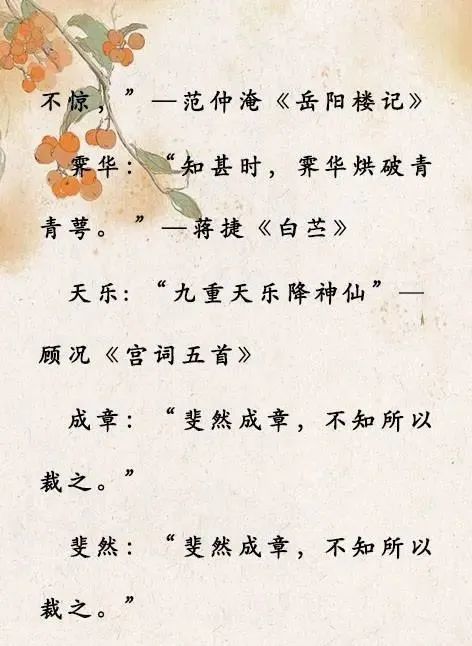 不惊，”—范仲淹《岳阳楼记》
霁华：“知甚时，霁华烘破青
青萼。”—蒋捷《白苎》
天乐：“九重天乐降神仙”—
顾况《宫词五首》
成章：“斐然成章，不知所以
裁之。”
斐然：“斐然成章，不知所以
裁之。”